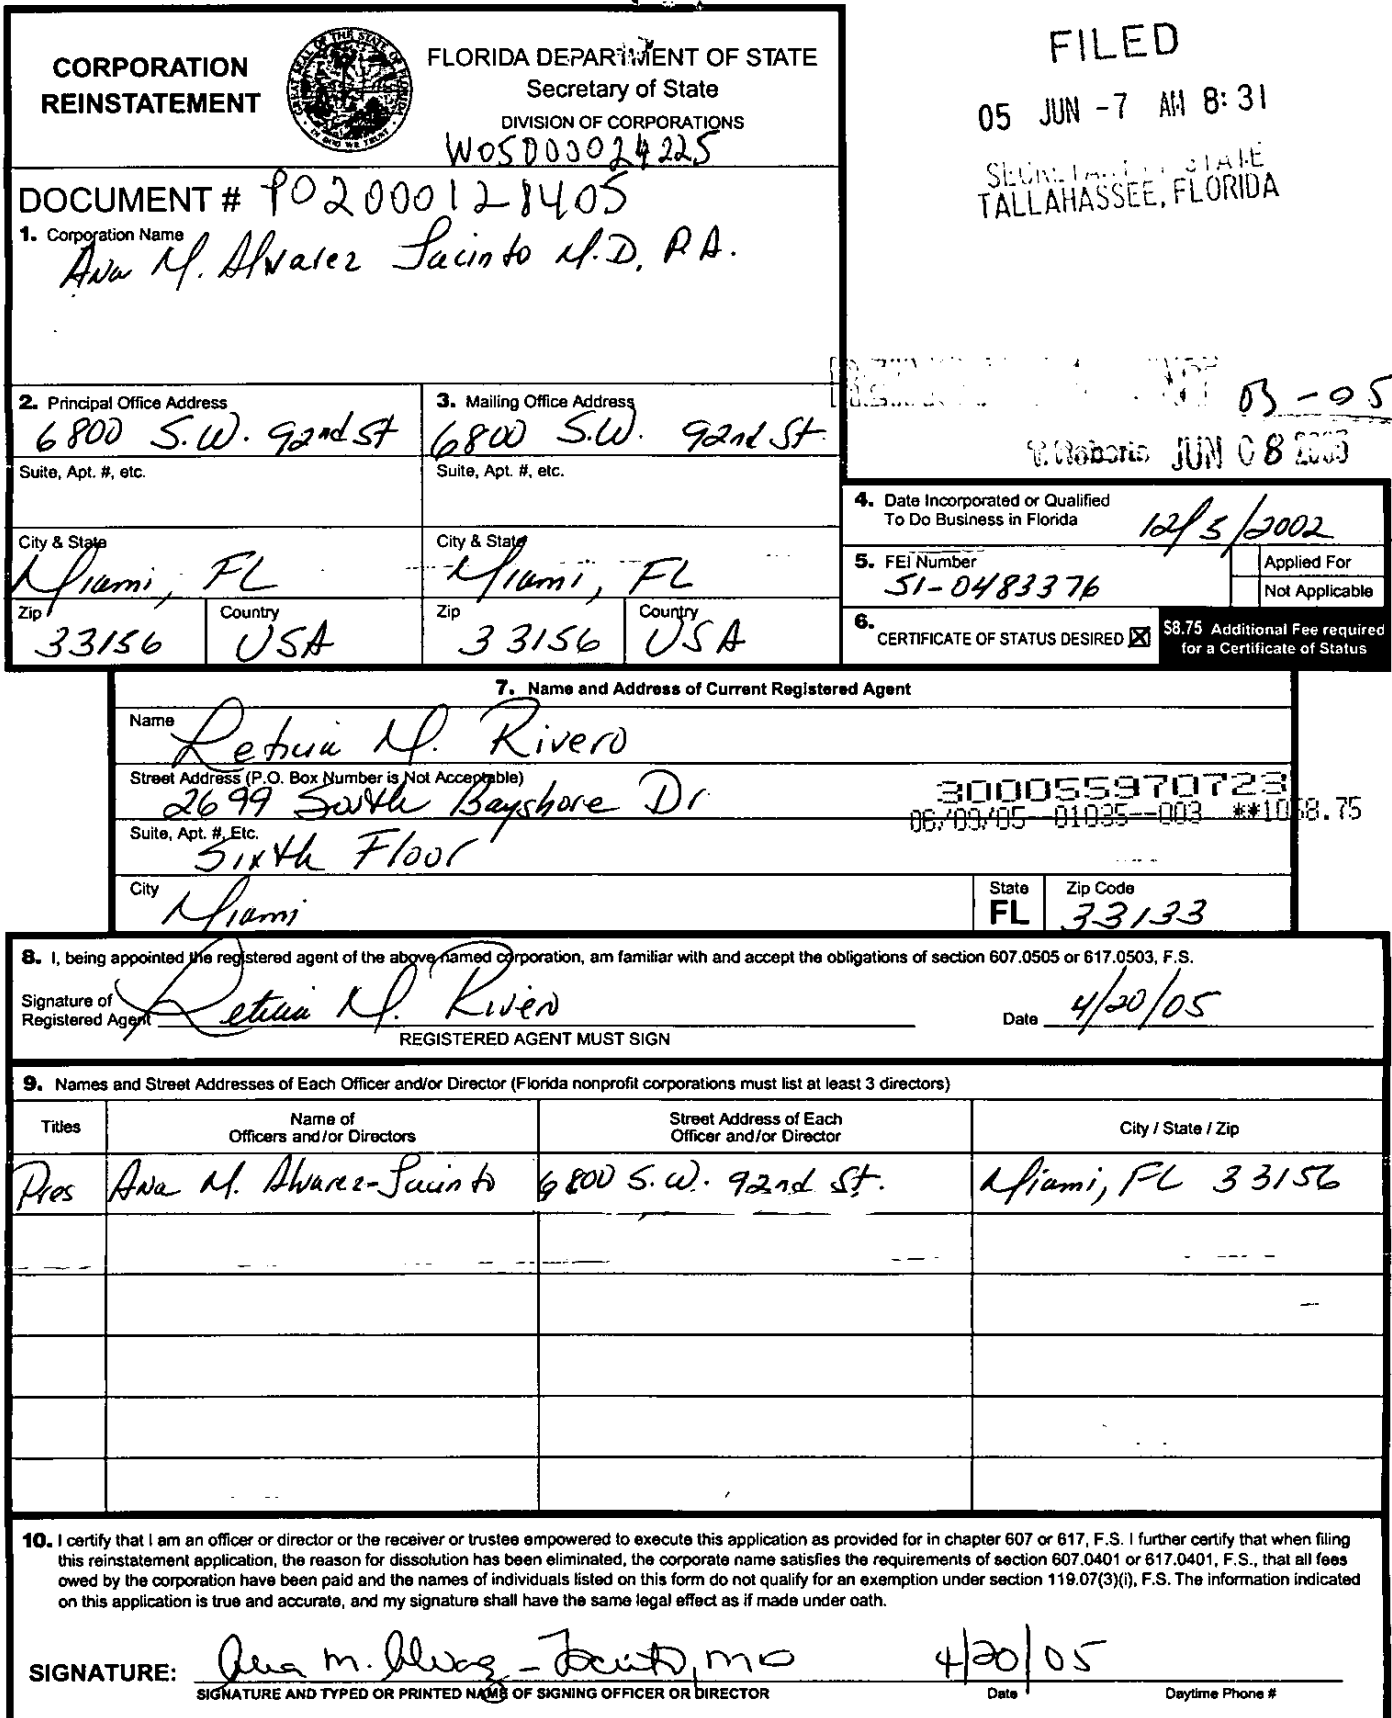 CORPORATION
REINSTATEMENT
GREAT SEAL OF THE STATE OF FLORIDA
IN GOD WE TRUST
FLORIDA DEPARTMENT OF STATE
Secretary of State
DIVISION OF CORPORATIONS
W05000024225
FILED
05 JUN -7 AM 8:31
SECRETARY OF STATE
TALLAHASSEE, FLORIDA
DOCUMENT # P02000128405
1. Corporation Name
Ana M. Alvarez Jacinto M.D, P.A.
03-05
T. Roberts JUN 08 2005
2. Principal Office Address
6800 S.W. 92nd St
3. Mailing Office Address
6800 S.W. 92nd St.
Suite, Apt. #, etc.
Suite, Apt. #, etc.
City & State
Miami, FL
City & State
Miami, FL
Zip
33156
Country
USA
Zip
33156
Country
USA
4. Date Incorporated or Qualified
To Do Business in Florida
12/5/2002
5. FEI Number
51-0483376
Applied For
Not Applicable
6.
CERTIFICATE OF STATUS DESIRED ☒
$8.75 Additional Fee required
for a Certificate of Status
7. Name and Address of Current Registered Agent
Name
Leticia M. Rivero
Street Address (P.O. Box Number is Not Acceptable)
2699 South Bayshore Dr.
300055970723
06/09/05--01035--003 **1058.75
Suite, Apt. #, Etc.
Sixth Floor
City
Miami
State
FL
Zip Code
33133
8. I, being appointed the registered agent of the above named corporation, am familiar with and accept the obligations of section 607.0505 or 617.0503, F.S.
Signature of
Registered Agent
Leticia M. Rivero
Date 4/20/05
REGISTERED AGENT MUST SIGN
9. Names and Street Addresses of Each Officer and/or Director (Florida nonprofit corporations must list at least 3 directors)
Titles
Name of
Officers and/or Directors
Street Address of Each
Officer and/or Director
City / State / Zip
Pres Ana M. Alvarez-Jacinto 6800 S.W. 92nd St. Miami, FL 33156
10. I certify that I am an officer or director or the receiver or trustee empowered to execute this application as provided for in chapter 607 or 617, F.S. I further certify that when filing
this reinstatement application, the reason for dissolution has been eliminated, the corporate name satisfies the requirements of section 607.0401 or 617.0401, F.S., that all fees
owed by the corporation have been paid and the names of individuals listed on this form do not qualify for an exemption under section 119.07(3)(i), F.S. The information indicated
on this application is true and accurate, and my signature shall have the same legal effect as if made under oath.
SIGNATURE: Ana M. Alvarez-Jacinto, MD 4/20/05
SIGNATURE AND TYPED OR PRINTED NAME OF SIGNING OFFICER OR DIRECTOR
Date
Daytime Phone #